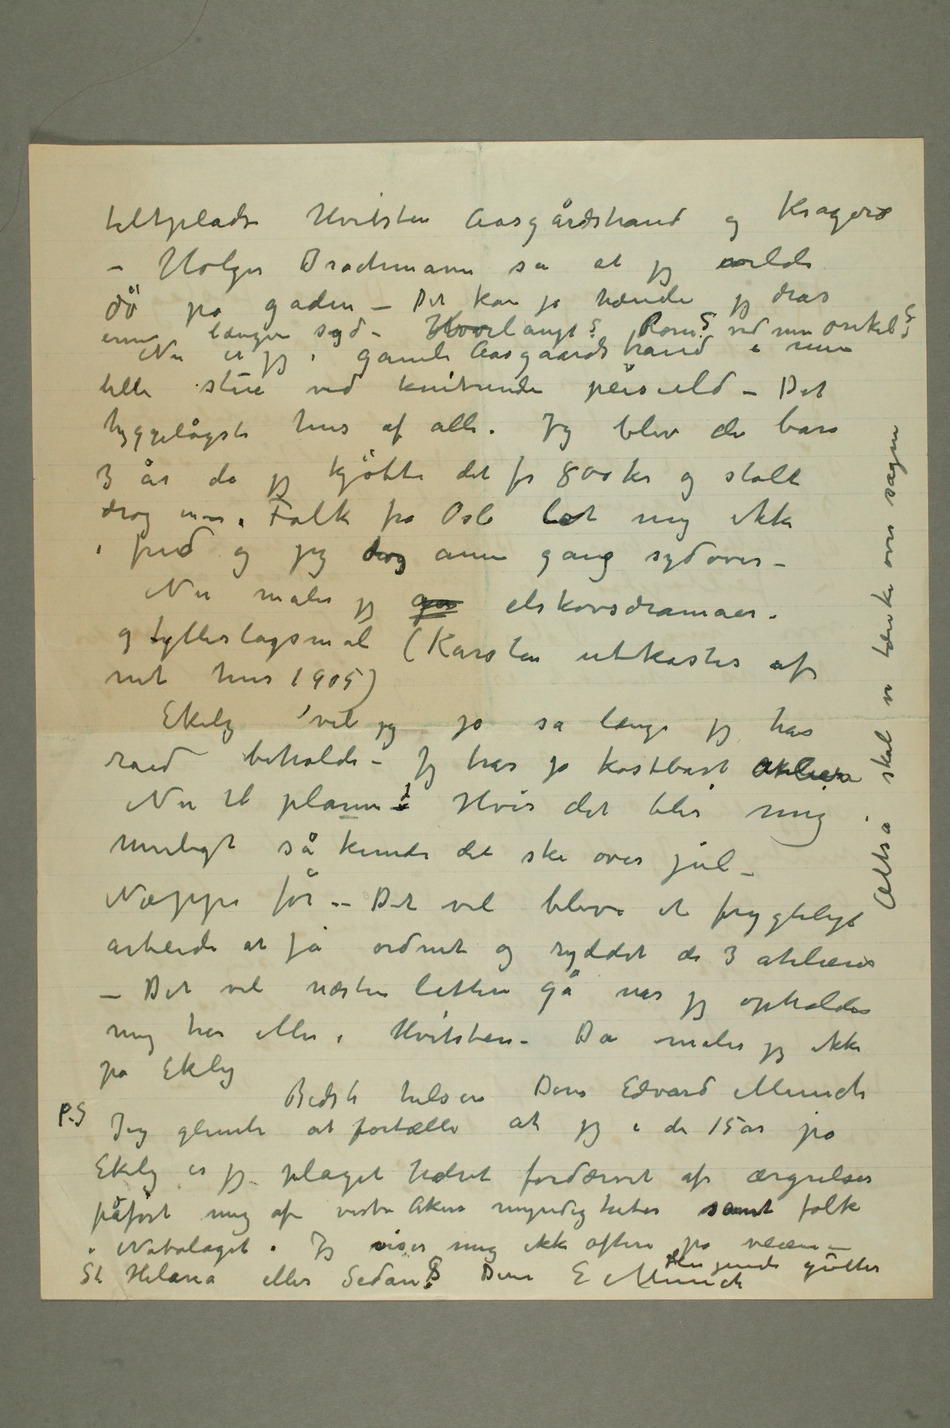 teltplads Hvitsten Aasgårdstrand og Kragerø
– Holger Drachmann sa at jeg vilde
dö på gaden – Det kan jo hænde jeg drar
ennu længer syd – Hvorlangt? Rom? ved min onkel?
Nu er jeg i gamle Aasgaardstrand i min
lille stue ved knitrende peisild – Det
hyggeligste hus af alle. Jeg blev der bare
3 år da jeg kjöbte det for 800 kr og stolt
drog ind. Folk fra Oslo lot mig ikke
i fred og jeg drog annen gang sydover –
Nu maler jeg elskovsdramaer.
og fylleslagsmål (Karsten utkastes af
mit hus 1905)
Ekely vil jeg jo sa længe jeg har
raad beholde – Jeg har jo kostbart Atelier
Nu til planen: Hvis det blir mig
muligt så kunde det ske over jul –
Næppe för – Det vil blive et frygteligt
arbeide at få ordnet og ryddet de 3 atelierer
– Det vil næsten lettere gå når jeg opholder
mig her eller i Hvitsten – Da maler jeg ikke
på Ekely
Bedste hilsen Deres Edvard Munch
P.S Jeg glemte at fortælle at jeg i de 15 år på
Ekely er jeg plaget helset fordærvet af ærgrelser
påfört mig af vestre Akers myndigheter samt folk
i Nabolaget. Jeg viser mig ikke oftere på veien –
gutter
St Helena eller Sedan? Deres E Munch
Altså skal vi tænke over sagen